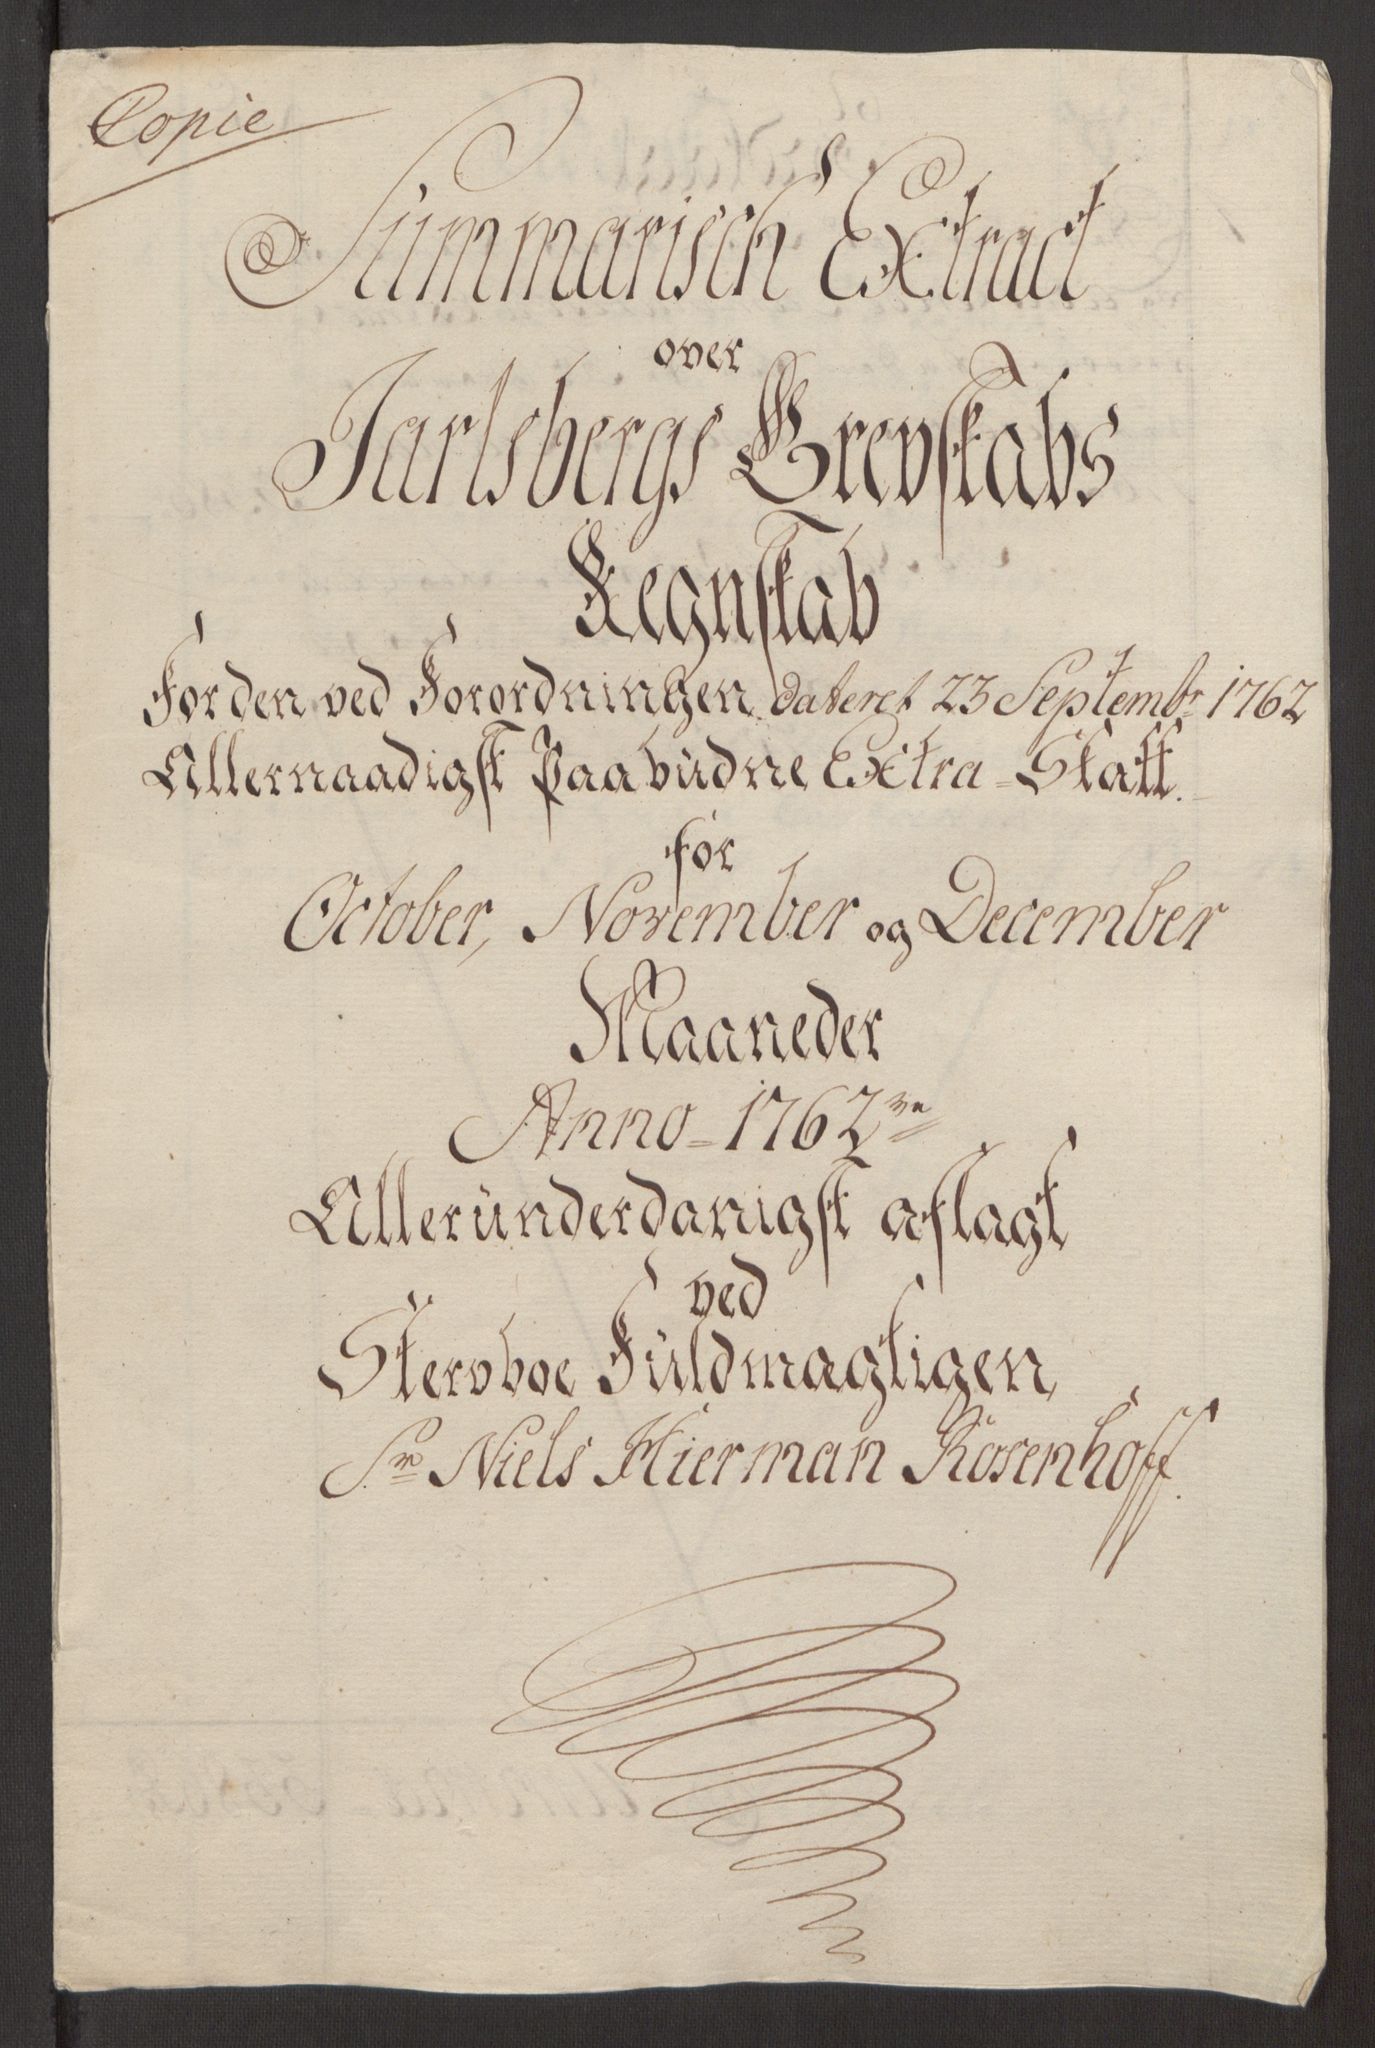 Copie
Summarisch Extract
over
Jarlsbergs Grevskabs
Regnskab
For den ved Forordningen dateret 23 Septembr 1762
Allernaadigst Paabudne Extra-Skatt.
for
October, November og December
Maaneder
Anno-1762
Alleründerdanigst aflagt
ved
Stervboe Füldmægtigen
Sr Niels Hierman Rosenhoff.